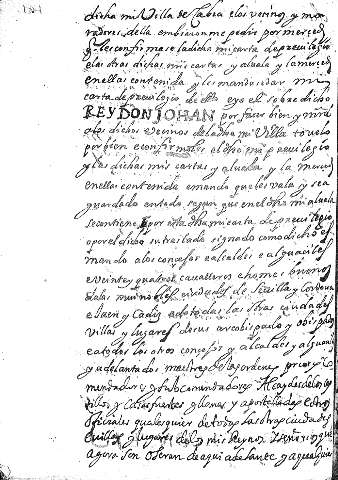 dicha mi Villa de Cabra e los vecinos y mo
radores della embiaronme pedir por merced
q les confirmase la dicha mi carta de preuilegio
e las otras dichas mis cartas y aluala y la merced
en ellas contenida y les mandose dar mi
carta de preuilegio de ello e yo el sobre dicho
REY DON JOHAN por facer bien y mrd
a los dichos vecinos de la dha mi Villa tovelo
por bien e confirmoles el dho mi preuilegio
y las dichas mis cartas y aluala y la merced
en ellas contenida e mando que les vala y sea
guardado en todo segun que en el dho mi aluala
se contiene e por esta dha mi carta de preuilegio
o por el dicho su traslado signado como dicho es
mando a los concejos e alcaldes e alguaciles
e veinte y quatros caualleros e homes buenos
de las mui nobles ciudades de Seuilla y Cordoua
e Jaen y Cadiz e de todas las otras ciudades
Villas y lugares de sus arcobispado y obispados
e a todos los otros concejos y alcaldes y alguaciles
y adelantados maestres de las ordenes priores co
mendadores y subcomendadores Alcaydes de los cas
tillos y casas fuertes y llanas y aportellados e otros
oficiales qualesquier de todas las otras ciudades
e villas y lugares de los mis Reynos y señorios que
agora son o seran de aqui adelante y a qualquier